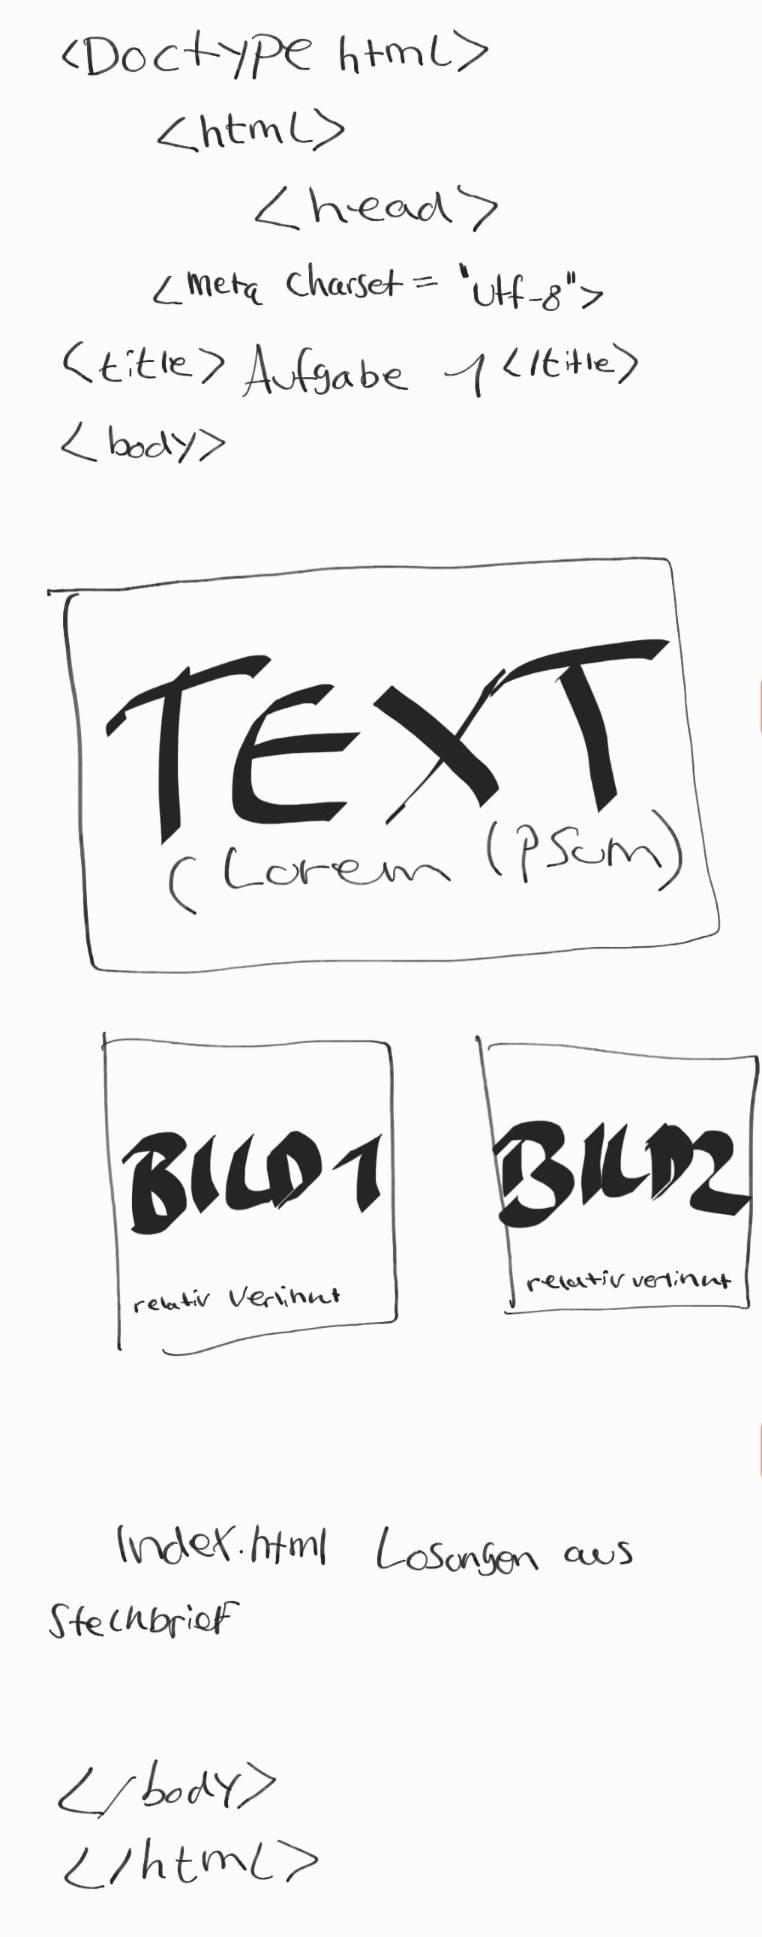 <Doctype html>
<html>
<head>
<meta charset = "utf-8">
<title> Aufgabe 1 </title>
<body>
TEXT
(Lorem Ipsum)
BILD1 BILD2
relativ verlinkt relativ verlinkt
Index.html Losungen aus
Steckbrief
</body>
</html>